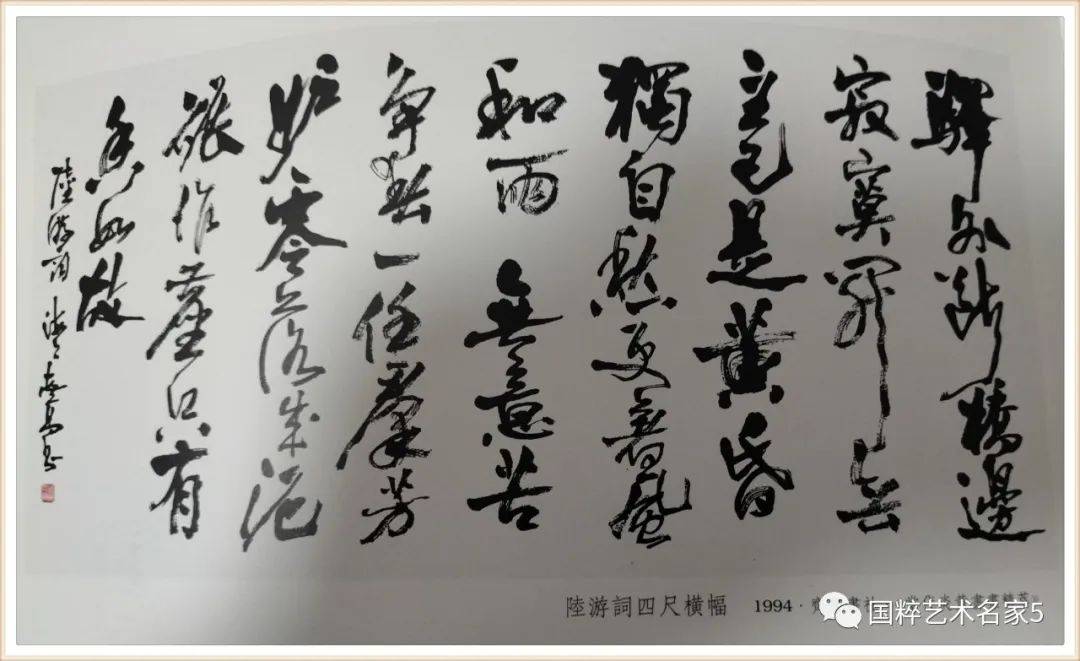 驛外斷橋邊
寂寞開無
主已是黃昏
獨自愁更著風
和雨 無意苦
爭春一任羣芳
妒零落成泥
碾作塵只有
香如故
陸游詞
陸游詞四尺橫幅 1994·
国粹艺术名家5